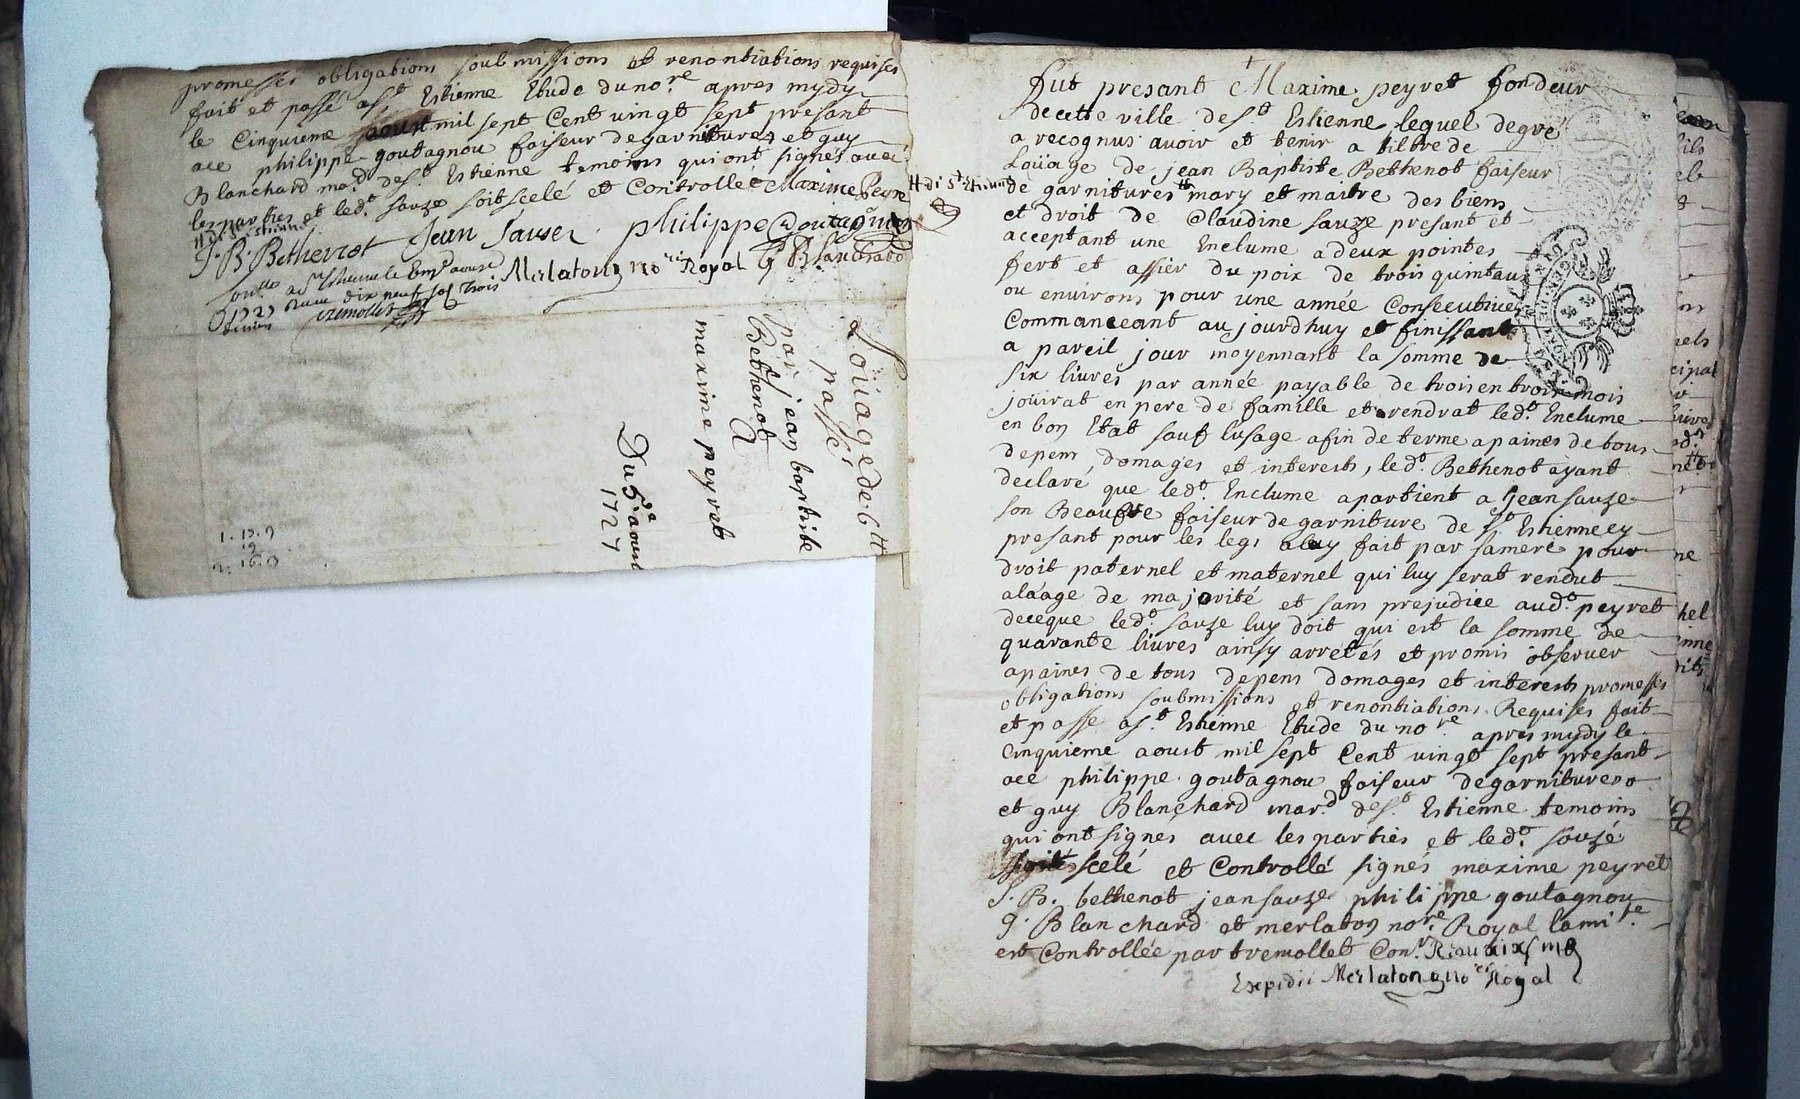 promesses obligations soubmissions et renontiations requises
fait et passé a St Estienne Etude du nore apres mydy
le Cinquieme aoust mil sept Cent vingt sept presant
ace philippe goutagnou faiseur de garnitures et guy
Blanchard mard de St Estienne temoins qui ont signes avec
les parties et led. sauze soit scelé et Controllée Maxime Peyret
J. B. Bethenot Jean Sauzea philippe Goutagniou
Merlaton no re Royal G Blanchard
1727 dix neuf sol trois
deniers tremollet
Loüage de 6 tt
passé
par jean baptiste
Bethenot
A
maxime peyret
Du 5e aoust
1727
fut presant Maxime peyret fondeur
de cette ville de St Estienne lequel de gré
a recognus avoir et tenir a tiltre de
Loüage de jean Baptiste Bethenot faiseur
de garnitures tt mary et maitre des biens
tt di St Estienne
et droit de Claudine sauze presant et
acceptant une Enclume a deux pointes
fert et assier du poix de trois quintaux
ou environs pour une année Consecutive
Commanceant aujourdhuy et finissant
a pareil jour moyennant la somme de
six livres par année payable de trois en trois mois
joüirat en pere de famille et rendrat led. Enclume
en bon Etat sauf lusage afin de terme apaines de tous
depens domages et interests, led. Bethenot ayant
declaré que led. Enclume apartient a Jean sauze
son Beaufre faiseur de garniture de St Estienne cy
presant pour les legs a luy fait par sa mere pour
droit paternel et maternel qui luy serat rendut
alaage de majorité et sans prejudice aud. peyret
deceque led. sauze luy doit qui est la somme de
quarante livres ainsy arretés et promis observer
apaines de tous depens domages et interests promesses
obligations soubmissions et renontiations Requises fait
et passe a St Estienne Etude du nore apres mydy le
Cinquieme aoust mil sept Cent vingt sept presant
ace philippe goutagnou faiseur de garnitures
et guy Blanchard mard de St Estienne temoins
qui ont signes avec les parties et led. sauzé
soit scelé et Controllé signés maxime peyret
J. B. bethenot jean sauze philippe goutagnou
g. Blanchard et merlaton nore Royal lamite
est Controllée par tremollet Con.r
Expedié Merlaton no re Royal